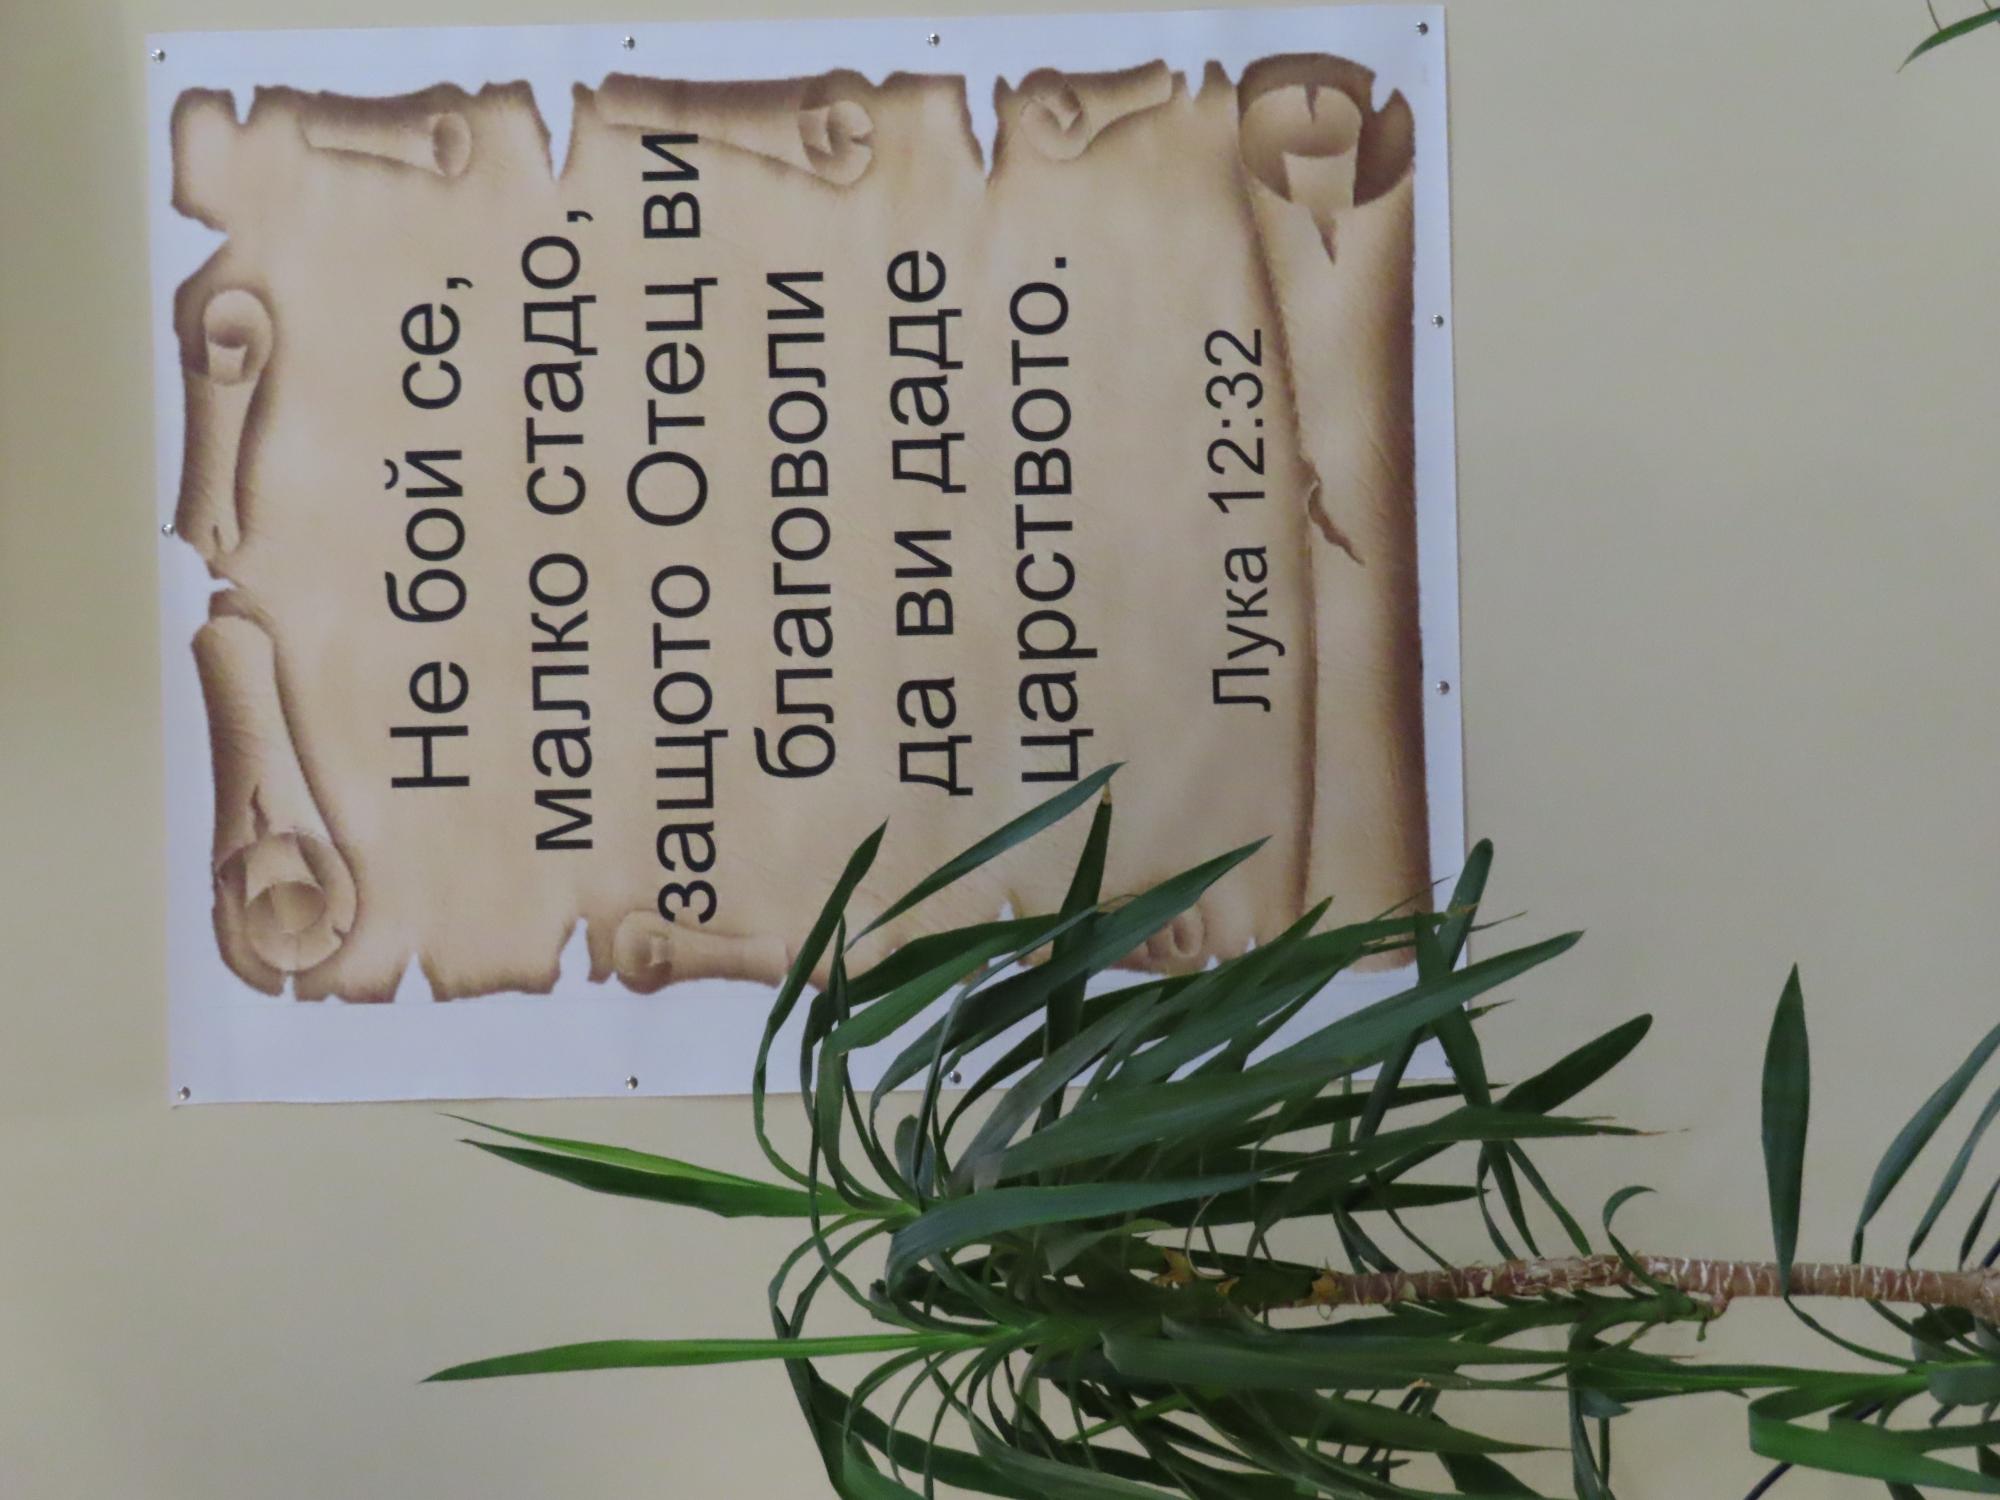 Не бой се,
малко стадо,
защото Отец ви
благоволи
да ви даде
царството.
Лука 12:32